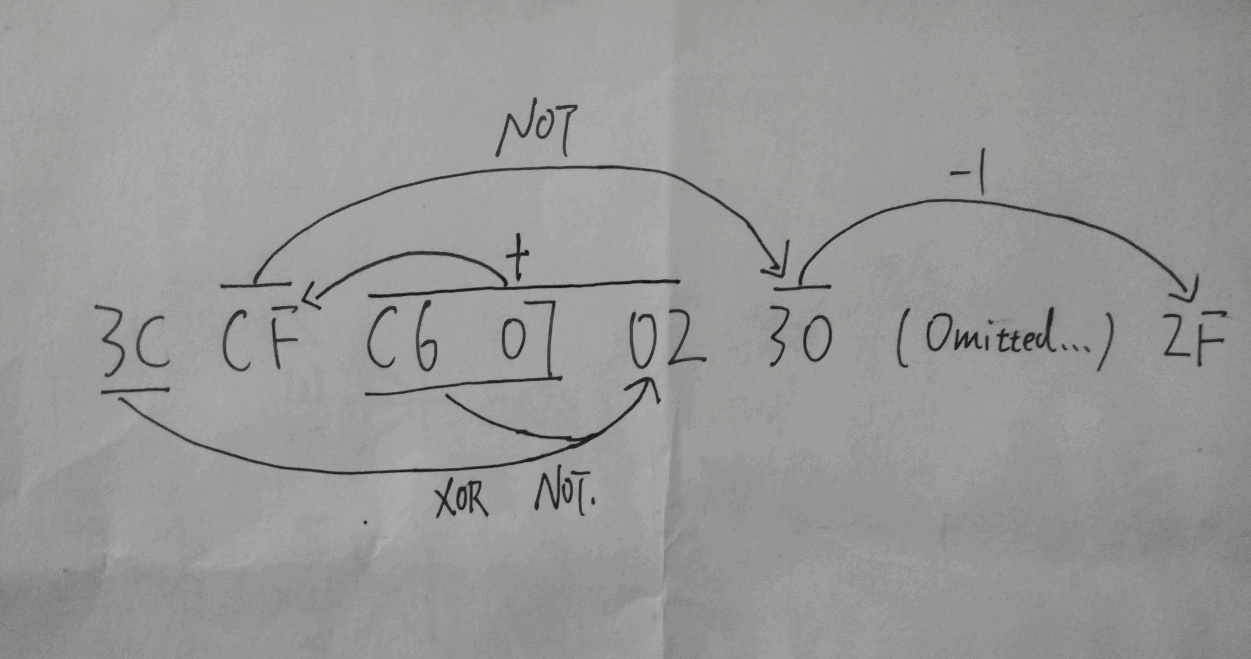 NOT
-1
+
3C CF C6 07 02 30 (Omitted...) 2F
XOR NOT.